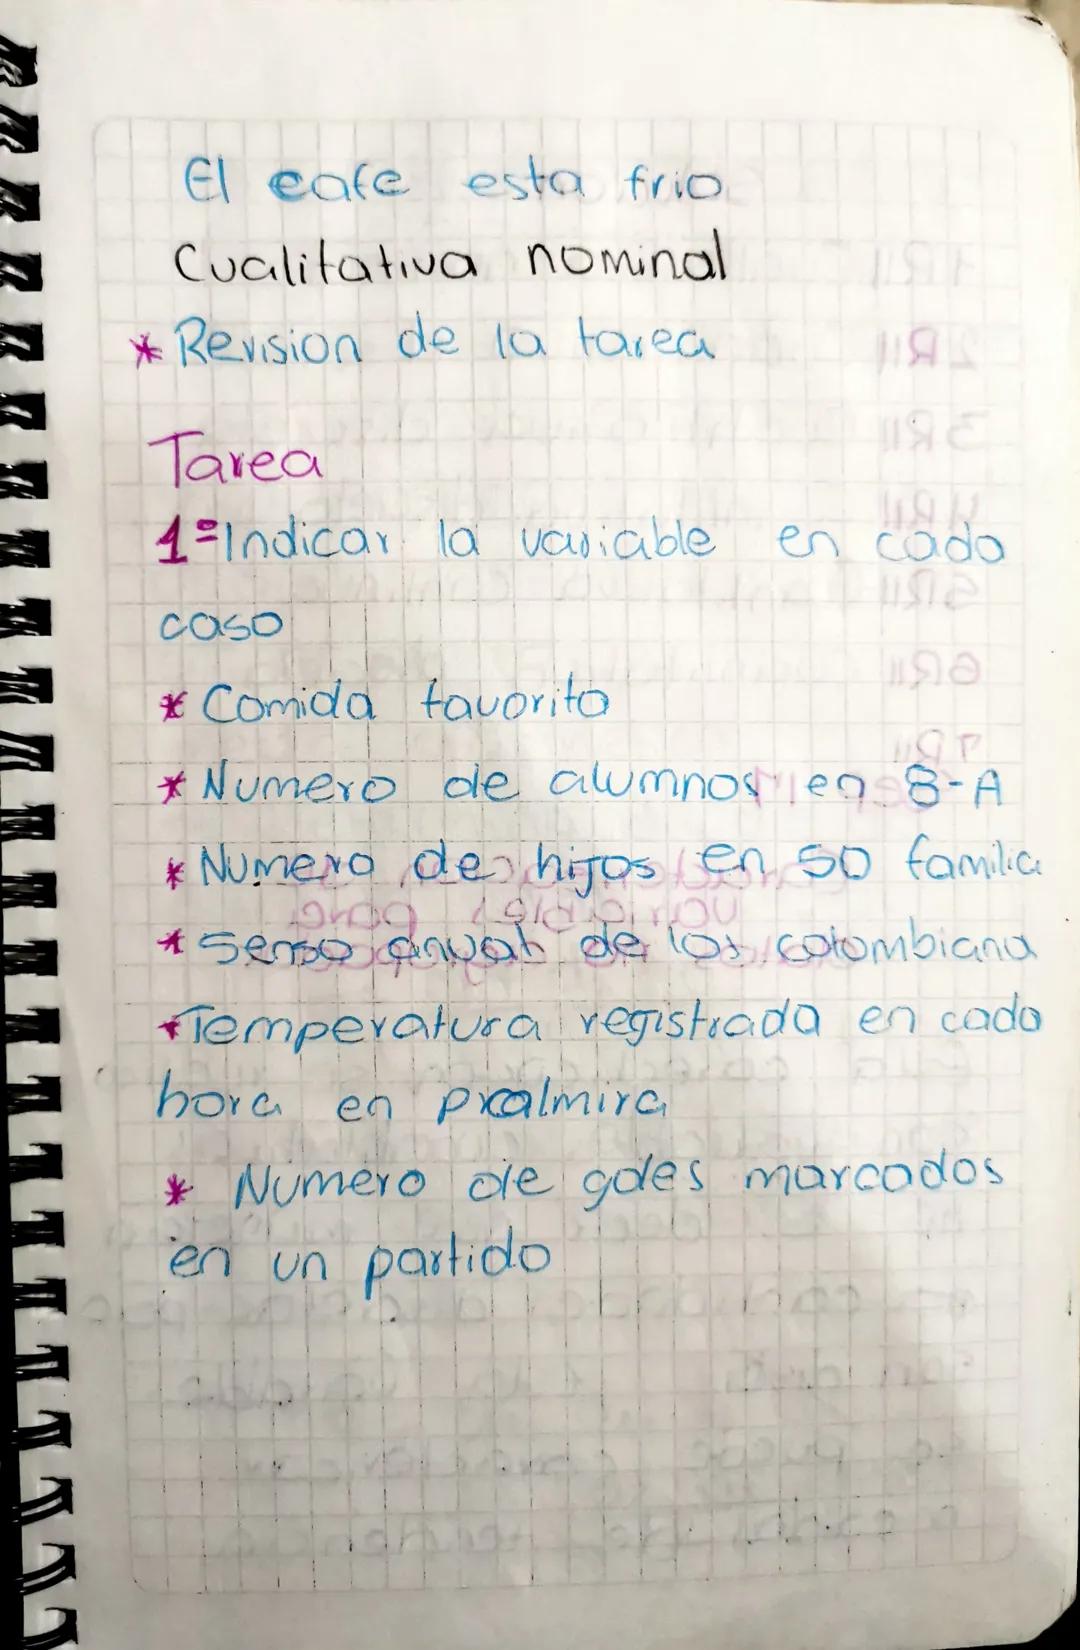 El cafe esta frio
Cualitativa nominal
* Revision de la tarea
Tarea
1º Indicar la variable en cada
caso
* Comida favorita
* Numero de alumnos en 8-A
* Numero de hijos en 50 familia
* Senso anual de los colombiana
* Temperatura registrada en cada
hora en palmira
* Numero de goles marcados
en un partido